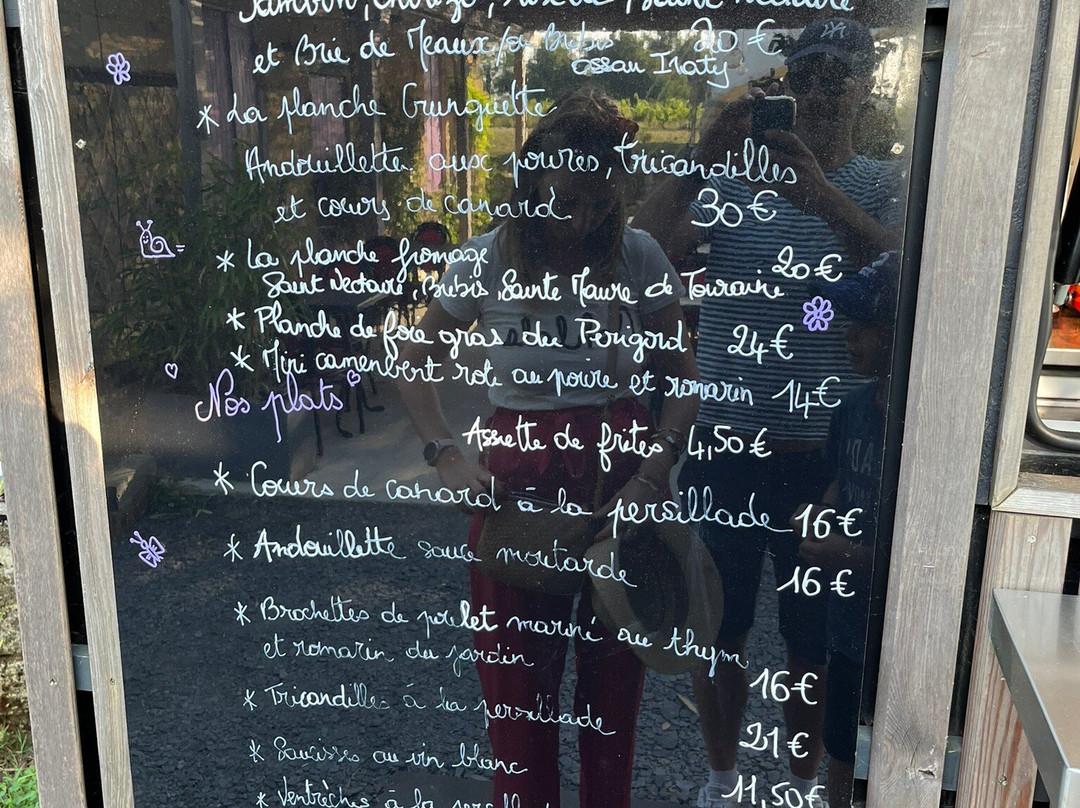 Jambon, Chorizo, Rosette,
et Brie de Meaux/ou Brebis 20 €
ossau Iraty
* La planche Gunguette
Andouillette aux poivres, tricandilles
et cœurs de canard 30 €
* La planche fromage 20 €
Saint Nectaire, Brebis, Sainte Maure de Touraine
* Planche de foie gras du Périgord 24 €
* Mini camembert roti au poivre et romarin 14 €
Nos plats
Assiette de frites 4,50 €
* Cœurs de canard à la persillade 16 €
* Andouillette sauce moutarde 16 €
* Brochettes de poulet mariné au thym
et romarin du jardin 16 €
* Tricandilles à la persillade 21 €
* Saucisses au vin blanc 11,50 €
* Ventrèches à la